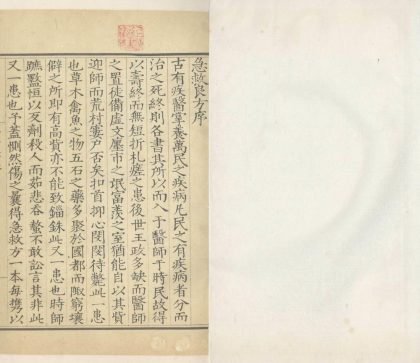 急救良方序
古有疾醫掌養萬民之疾病凡民之有疾病者分而
治之死終則各書其所以而入于醫師于時民故得
以壽終而無短折札瘥之患後世王政多缺而醫師
之置徒備虛文廛市之氓富羨之室猶能自以其貲
迎師而荒村窶戶否矣扣首抑心閔閔待斃此一患
也草木禽魚之物五石之藥多聚於國都而陬窮壤
僻之所即有高貲亦不能致錙銖此又一患也時師
鴟黠恒以反劑殺人而茹悲吞螫不敢訟言其非此
又一患也予蓋惻然傷之曩得急救方一本每攜以